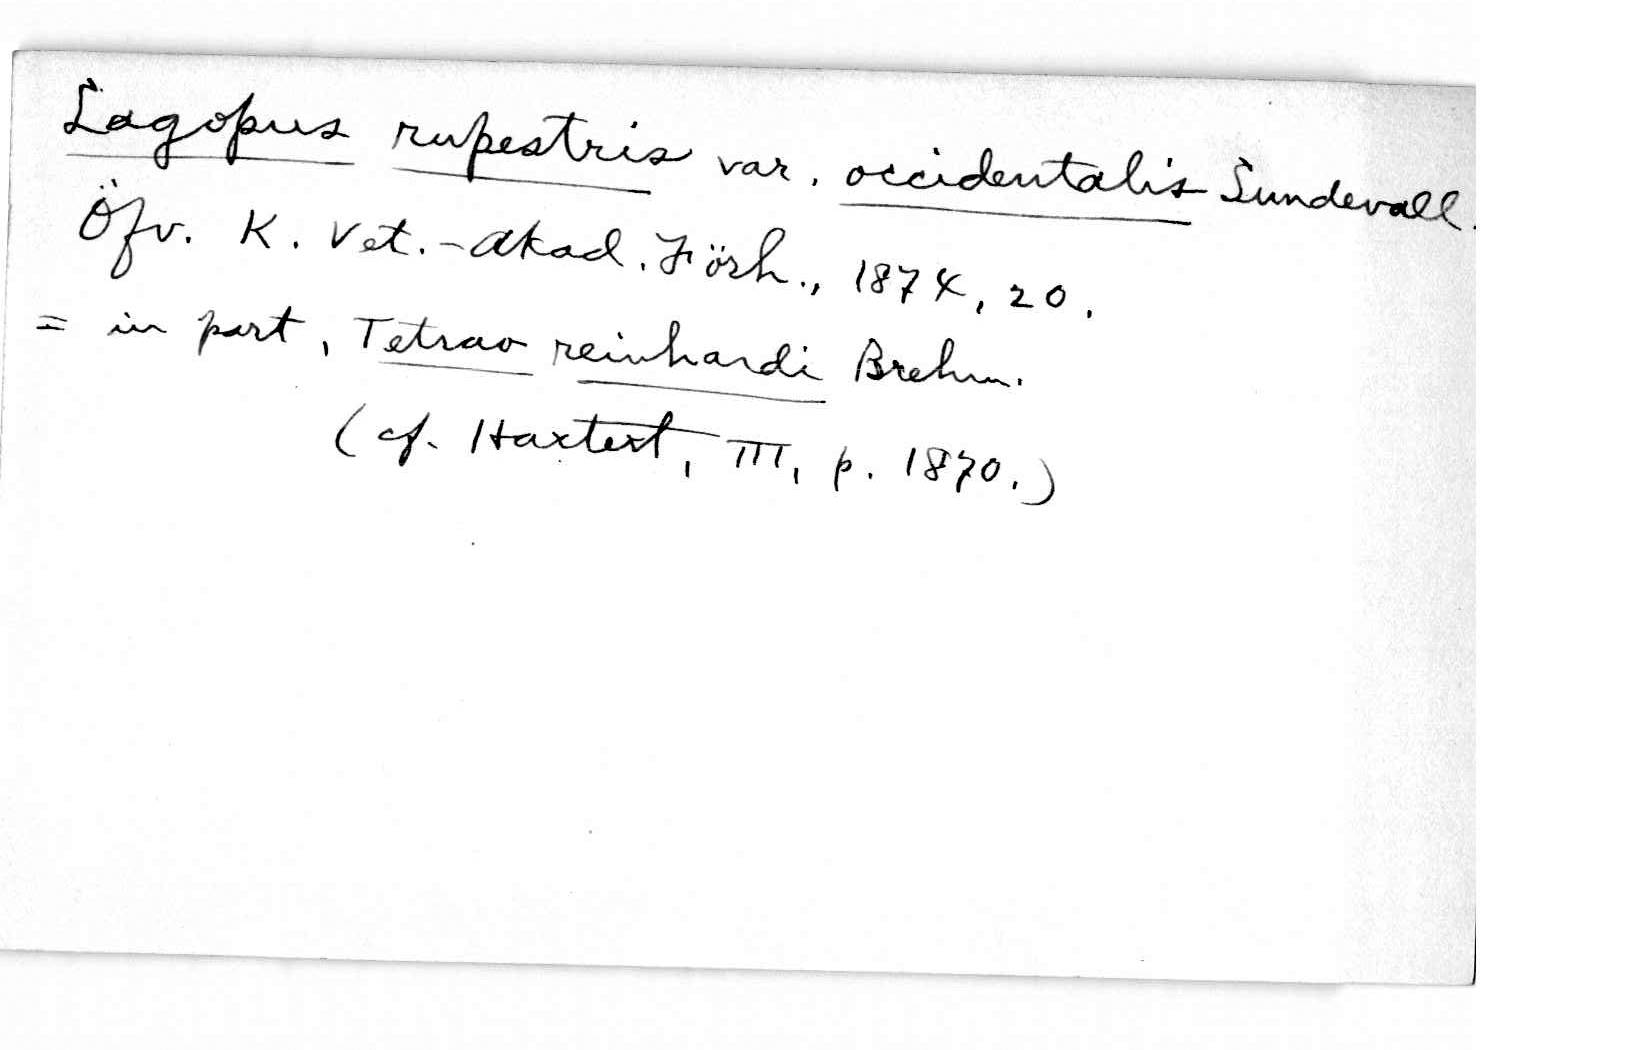 Lagopus rupestris var. occidentalis Sundevall.
Öfv. K. Vet.-Akad. Förh., 1874, 20.
= in part, Tetrao reinhardi Brehm.
(cf. Hartert, III, p. 1870.)